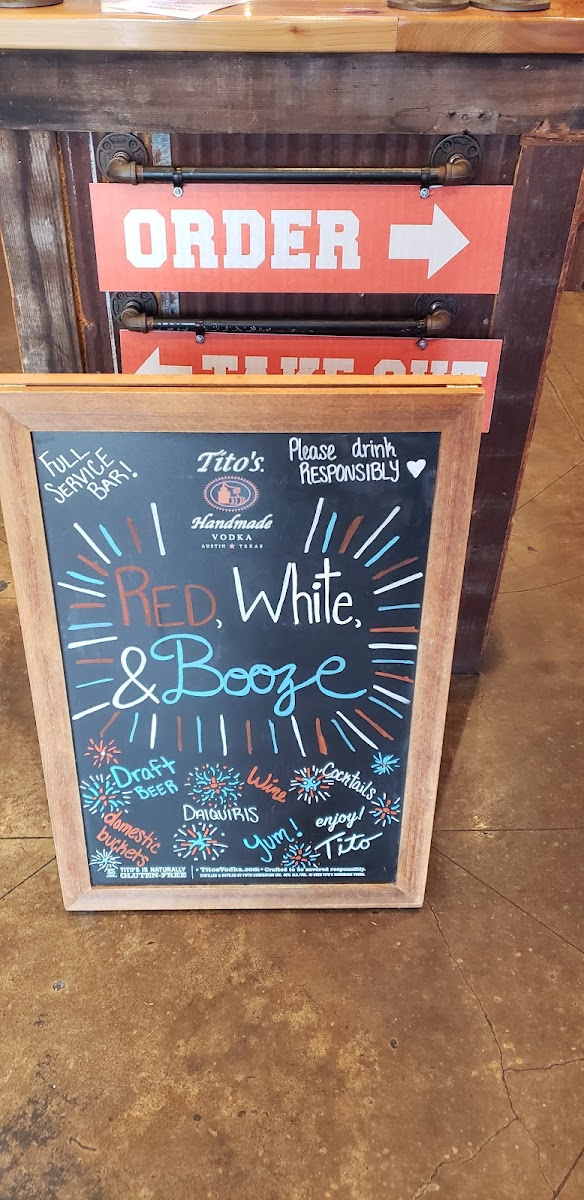 ORDER
TAKE OUT
FULL
SERVICE
BAR!
Please drink
RESPONSIBLY
Tito's
Handmade
VODKA
AUSTIN ★ TEXAS
RED, White,
& Booze
Draft
BEER
Wine
Cocktails
DAIQUIRIS
domestic
buckets
Yum!
enjoy!
Tito
TITO'S IS NATURALLY
GLUTEN-FREE
• TitosVodka.com • Crafted to be savored responsibly.